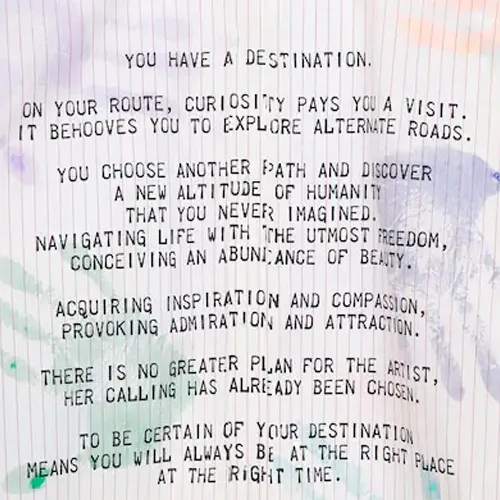 YOU HAVE A DESTINATION.
ON YOUR ROUTE, CURIOSITY PAYS YOU A VISIT.
IT BEHOOVES YOU TO EXPLORE ALTERNATE ROADS.
YOU CHOOSE ANOTHER PATH AND DISCOVER
A NEW ALTITUDE OF HUMANITY
THAT YOU NEVER IMAGINED.
NAVIGATING LIFE WITH THE UTMOST FREEDOM,
CONCEIVING AN ABUNDANCE OF BEAUTY.
ACQUIRING INSPIRATION AND COMPASSION,
PROVOKING ADMIRATION AND ATTRACTION.
THERE IS NO GREATER PLAN FOR THE ARTIST,
HER CALLING HAS ALREADY BEEN CHOSEN.
TO BE CERTAIN OF YOUR DESTINATION
MEANS YOU WILL ALWAYS BE AT THE RIGHT PLACE
AT THE RIGHT TIME.